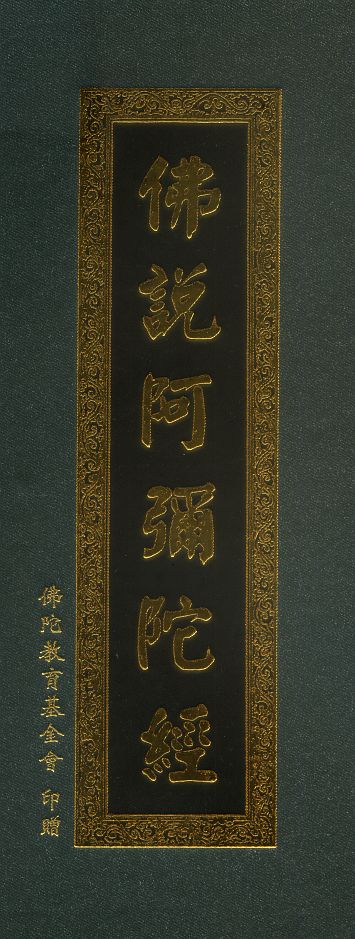 佛說阿彌陀經
佛陀教育基金會 印贈